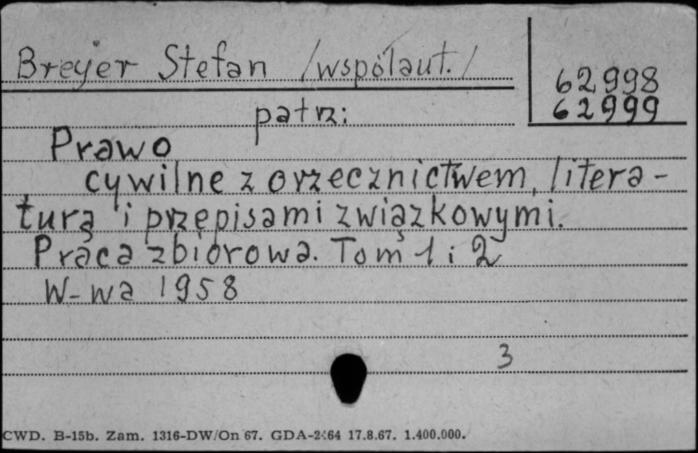 Breyer Stefan /współaut./
62998
62999
patrz:
Prawo
cywilne z orzecznictwem, litera-
turą i przepisami związkowymi.
Praca zbiorowa. Tom 1 i 2
W-wa 1958
3
CWD. B-15b. Zam. 1316-DW/On 67. GDA-2464 17.8.67. 1.400.000.